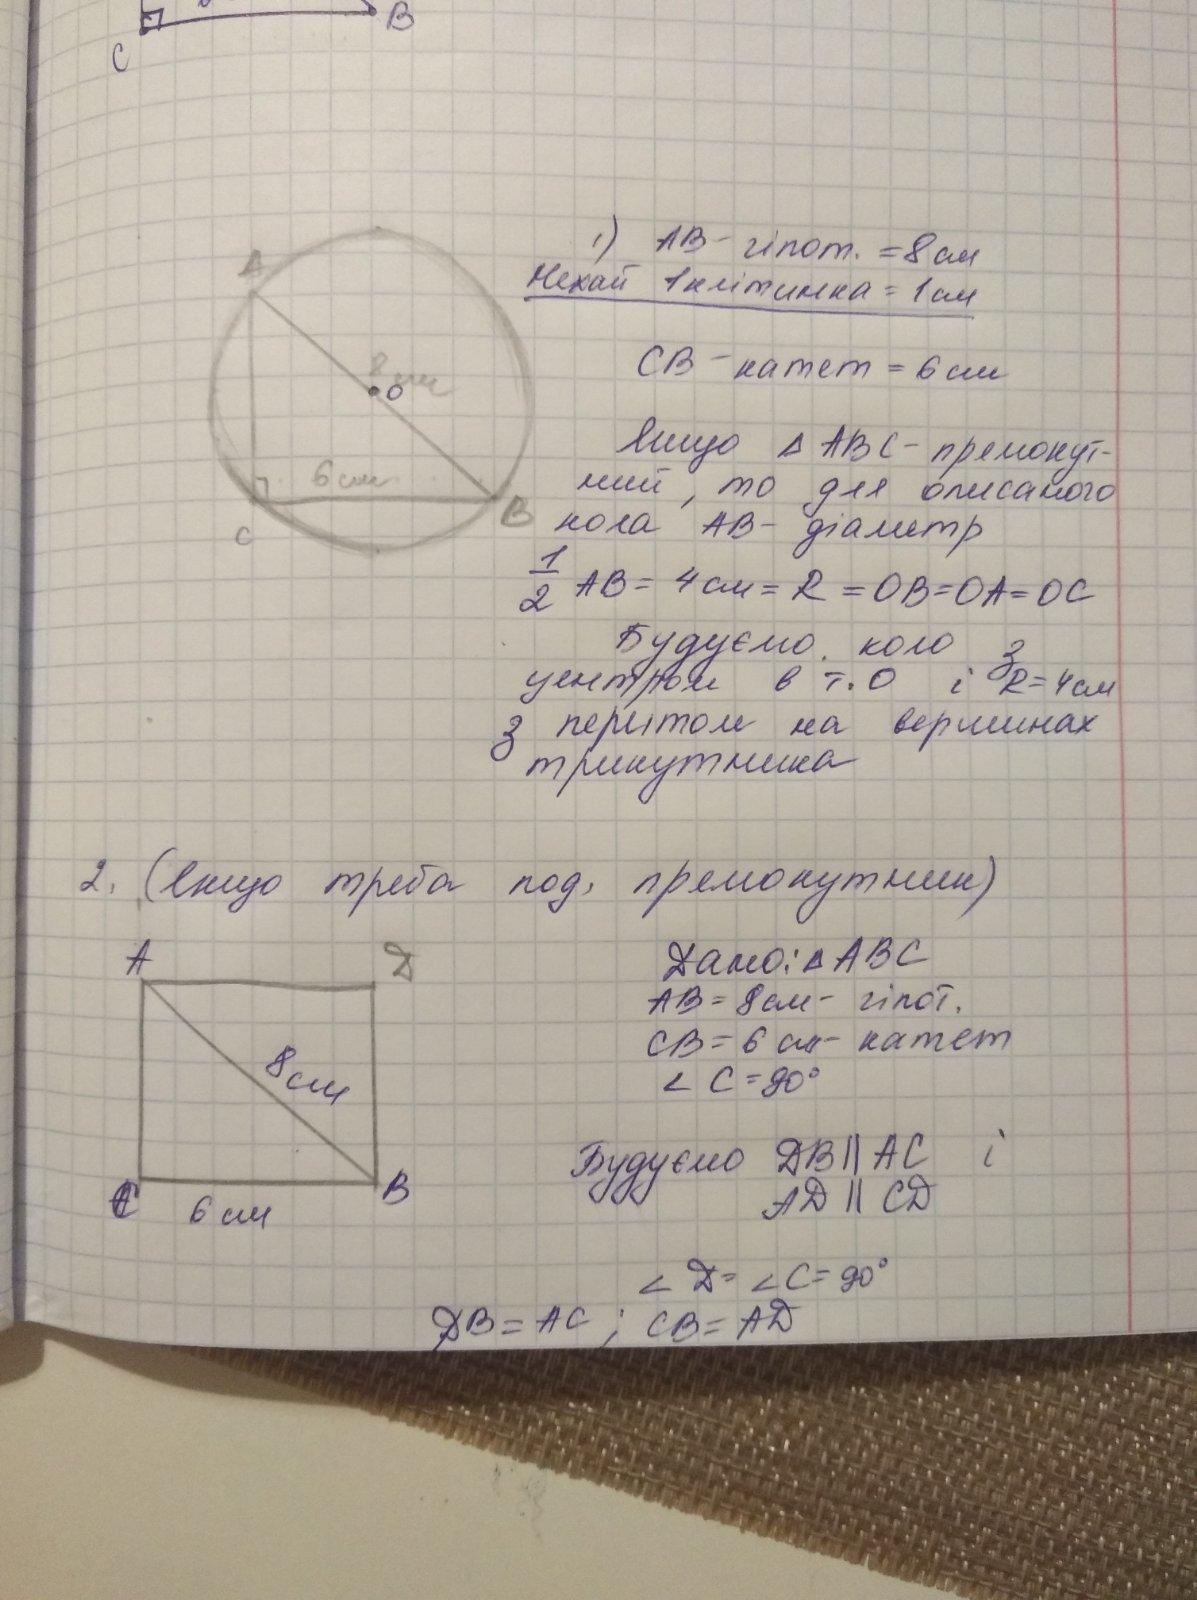 B
C
A
8 см
O
6 см
C
B
1) AB - гіпот. = 8 см
Нехай 1 клітинка = 1 см
CB - катет = 6 см
Якщо △ ABC - прямокут-
ний, то для описаного
кола AB - діаметр
1/2 AB = 4 см = R = OB = OA = OC
Будуємо коло з
центром в т. O і R = 4 см
з перетом на вершинах
трикутника
2. (якщо треба под, прямокутник)
A
D
8 см
C
B
6 см
Дано: △ ABC
AB = 8 см - гіпот.
CB = 6 см - катет
∠ C = 90°
Будуємо DB || AC і
AD || CD
∠ D = ∠ C = 90°
DB = AC ; CB = AD